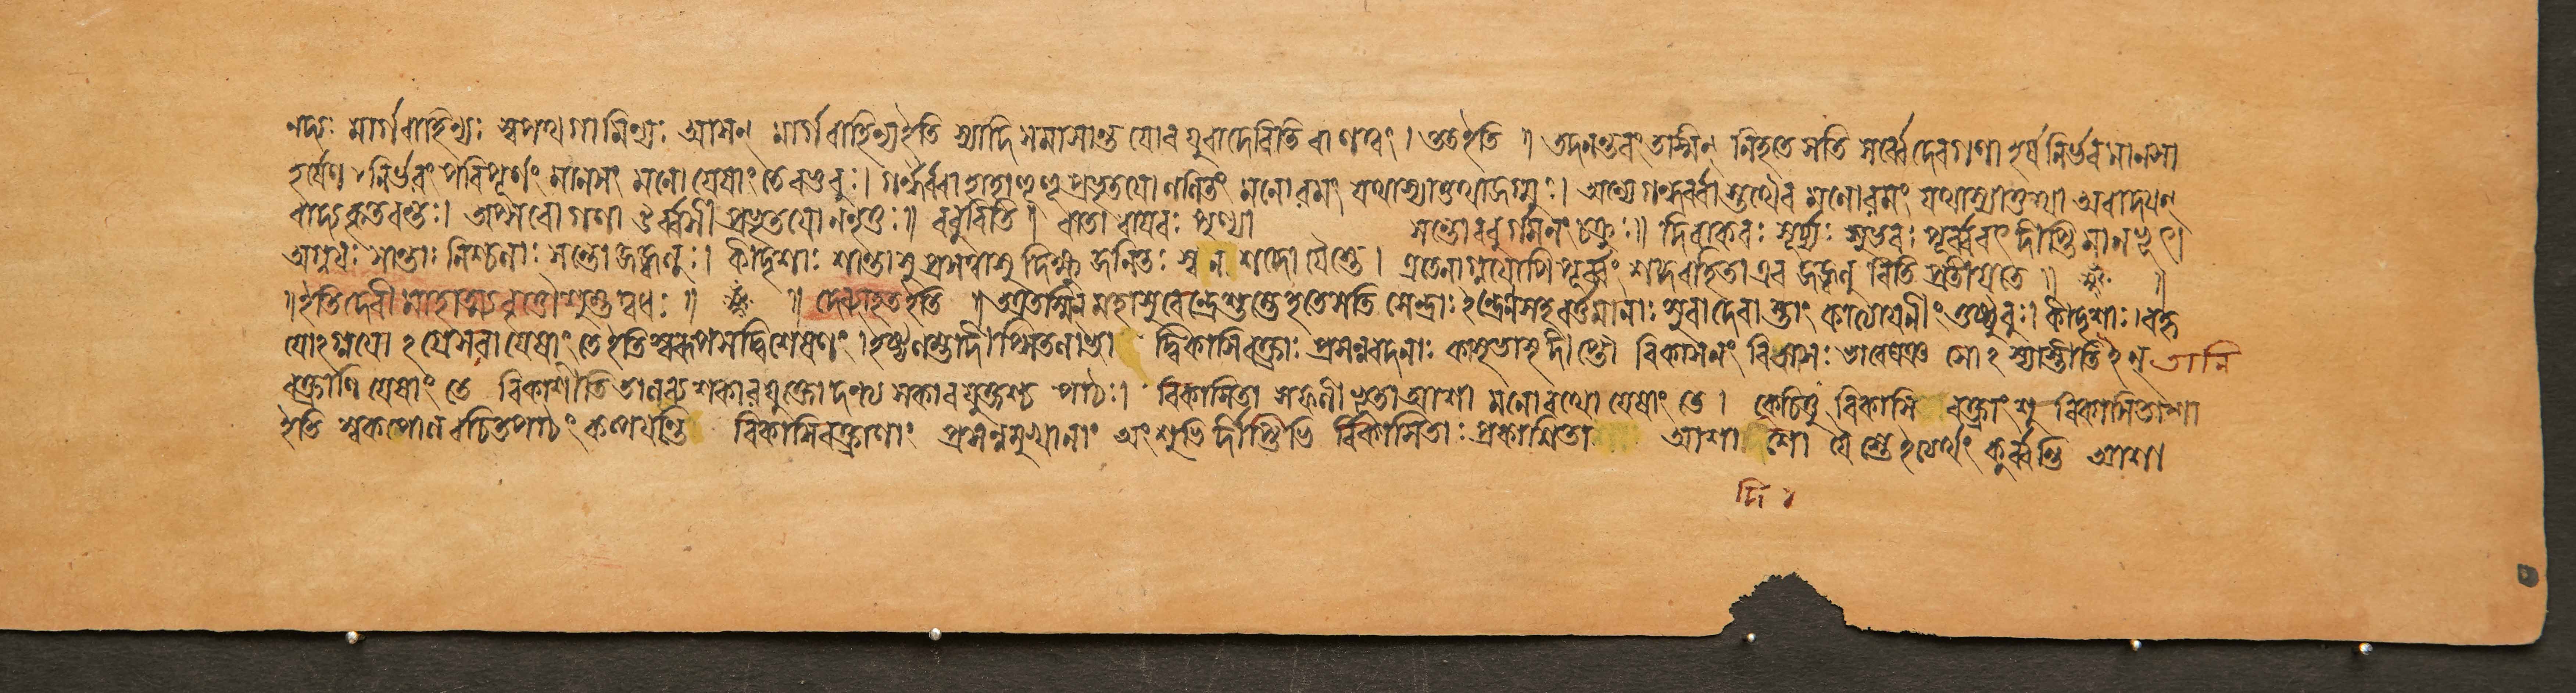 নদ্যঃ মার্গবাহিন্যঃ স্বপথগামিন্যঃ আসন্ মার্গবাহিন্যইতি স্যাদি সমাসান্ত যোব যুবাদেরিতি বা ণত্বং । ততইতি ॥ তদনন্তরং তস্মিন্ নিহতে সতি সর্ব্বেদেবগণা হর্ষনির্ভরমানসা
হর্ষেণ নির্ভরং পরিপূর্ণং মানসং মনো যেষাং তে বভূবুঃ। গন্ধর্ব্বা হাহাহূহূপ্রভৃতয়ো ললিতং মনোরমং যথাস্যাত্তথাজগুঃ। অন্যে গন্ধর্ব্বা স্তথৈব মনোরমং যথাস্যাত্তথা অবাদয়ন্
বাদ্যকৃতবন্তঃ। অপ্সরোগণা ঊর্ব্বশী প্রভৃতয়ো ননৃতুঃ॥ ববুরিতি ॥ বাতা বায়বঃ পুণ্যা সন্তোববুর্গমনং চক্রুঃ॥ দিবাকরঃ সূর্য্যঃ সুপ্রভঃ পূর্ব্ববৎ দীপ্তিমানভূৎ।
অগ্নয়ঃ শান্তাঃ নিশ্চলাঃ সন্তো জজ্বলুঃ। কীদৃশাঃ শান্তাসু প্রসন্নাসু দিক্ষু জনিতঃ স্বন শব্দো যৈস্তে। এতেনাগ্নয়োপি পূর্ব্বং শব্দরহিতা এব জজ্বলু রিতি প্রতীয়তে ॥ ॥
॥ইতি দেবীমাহাত্ম্যবৃত্তৌ শুম্ভবধঃ ॥ ॥ দেব্যাহতইতি ॥ তত্রতস্মিন্ মহাসুরেন্দ্রে শুম্ভেহতেসতি সেন্দ্রাঃ ইন্দ্রেণসহ বর্ত্তমানাঃ সুরাদেবা স্তাং কাত্যায়নীং তুষ্টুবুঃ। কীদৃশাঃ। বহ্নি
যোঽগ্নয়ো ঽগ্রেসরা যেষাং তে ইতি স্বরূপসদ্বিশেষণং। ইষ্টলম্ভাদ্ বিকাসিবক্ত্রাঃ প্রসন্নবদনাঃ কাসৃভাসৃদীপ্তৌ বিকাসনং বিকাসঃ ভাবেঘঞ্ সোঽ স্যাস্তীতি ইন্ তানি
বক্ত্রাণি যেষাং তে বিকাশীতি তালব্য শকারযুক্তোদন্ত্য সকারযুক্তশ্চ পাঠঃ। বিকাসিতা সফলীভূতা আশা মনোরথো যেষাং তে। কেচিত্তু বিকাসি বক্ত্রাংশু বিকাসিতাশা
ইতি স্বকপোলরচিতপাঠং কল্পয়ন্তি বিকাসিবক্ত্রাণাং প্রসন্নমুখানাং অংশুভির্দীপ্তিভি র্বিকাসিতাঃ প্রকাশিতা আশা দিশো যৈস্তেঽত্যর্থং কুর্ব্বন্তি আশা
দি